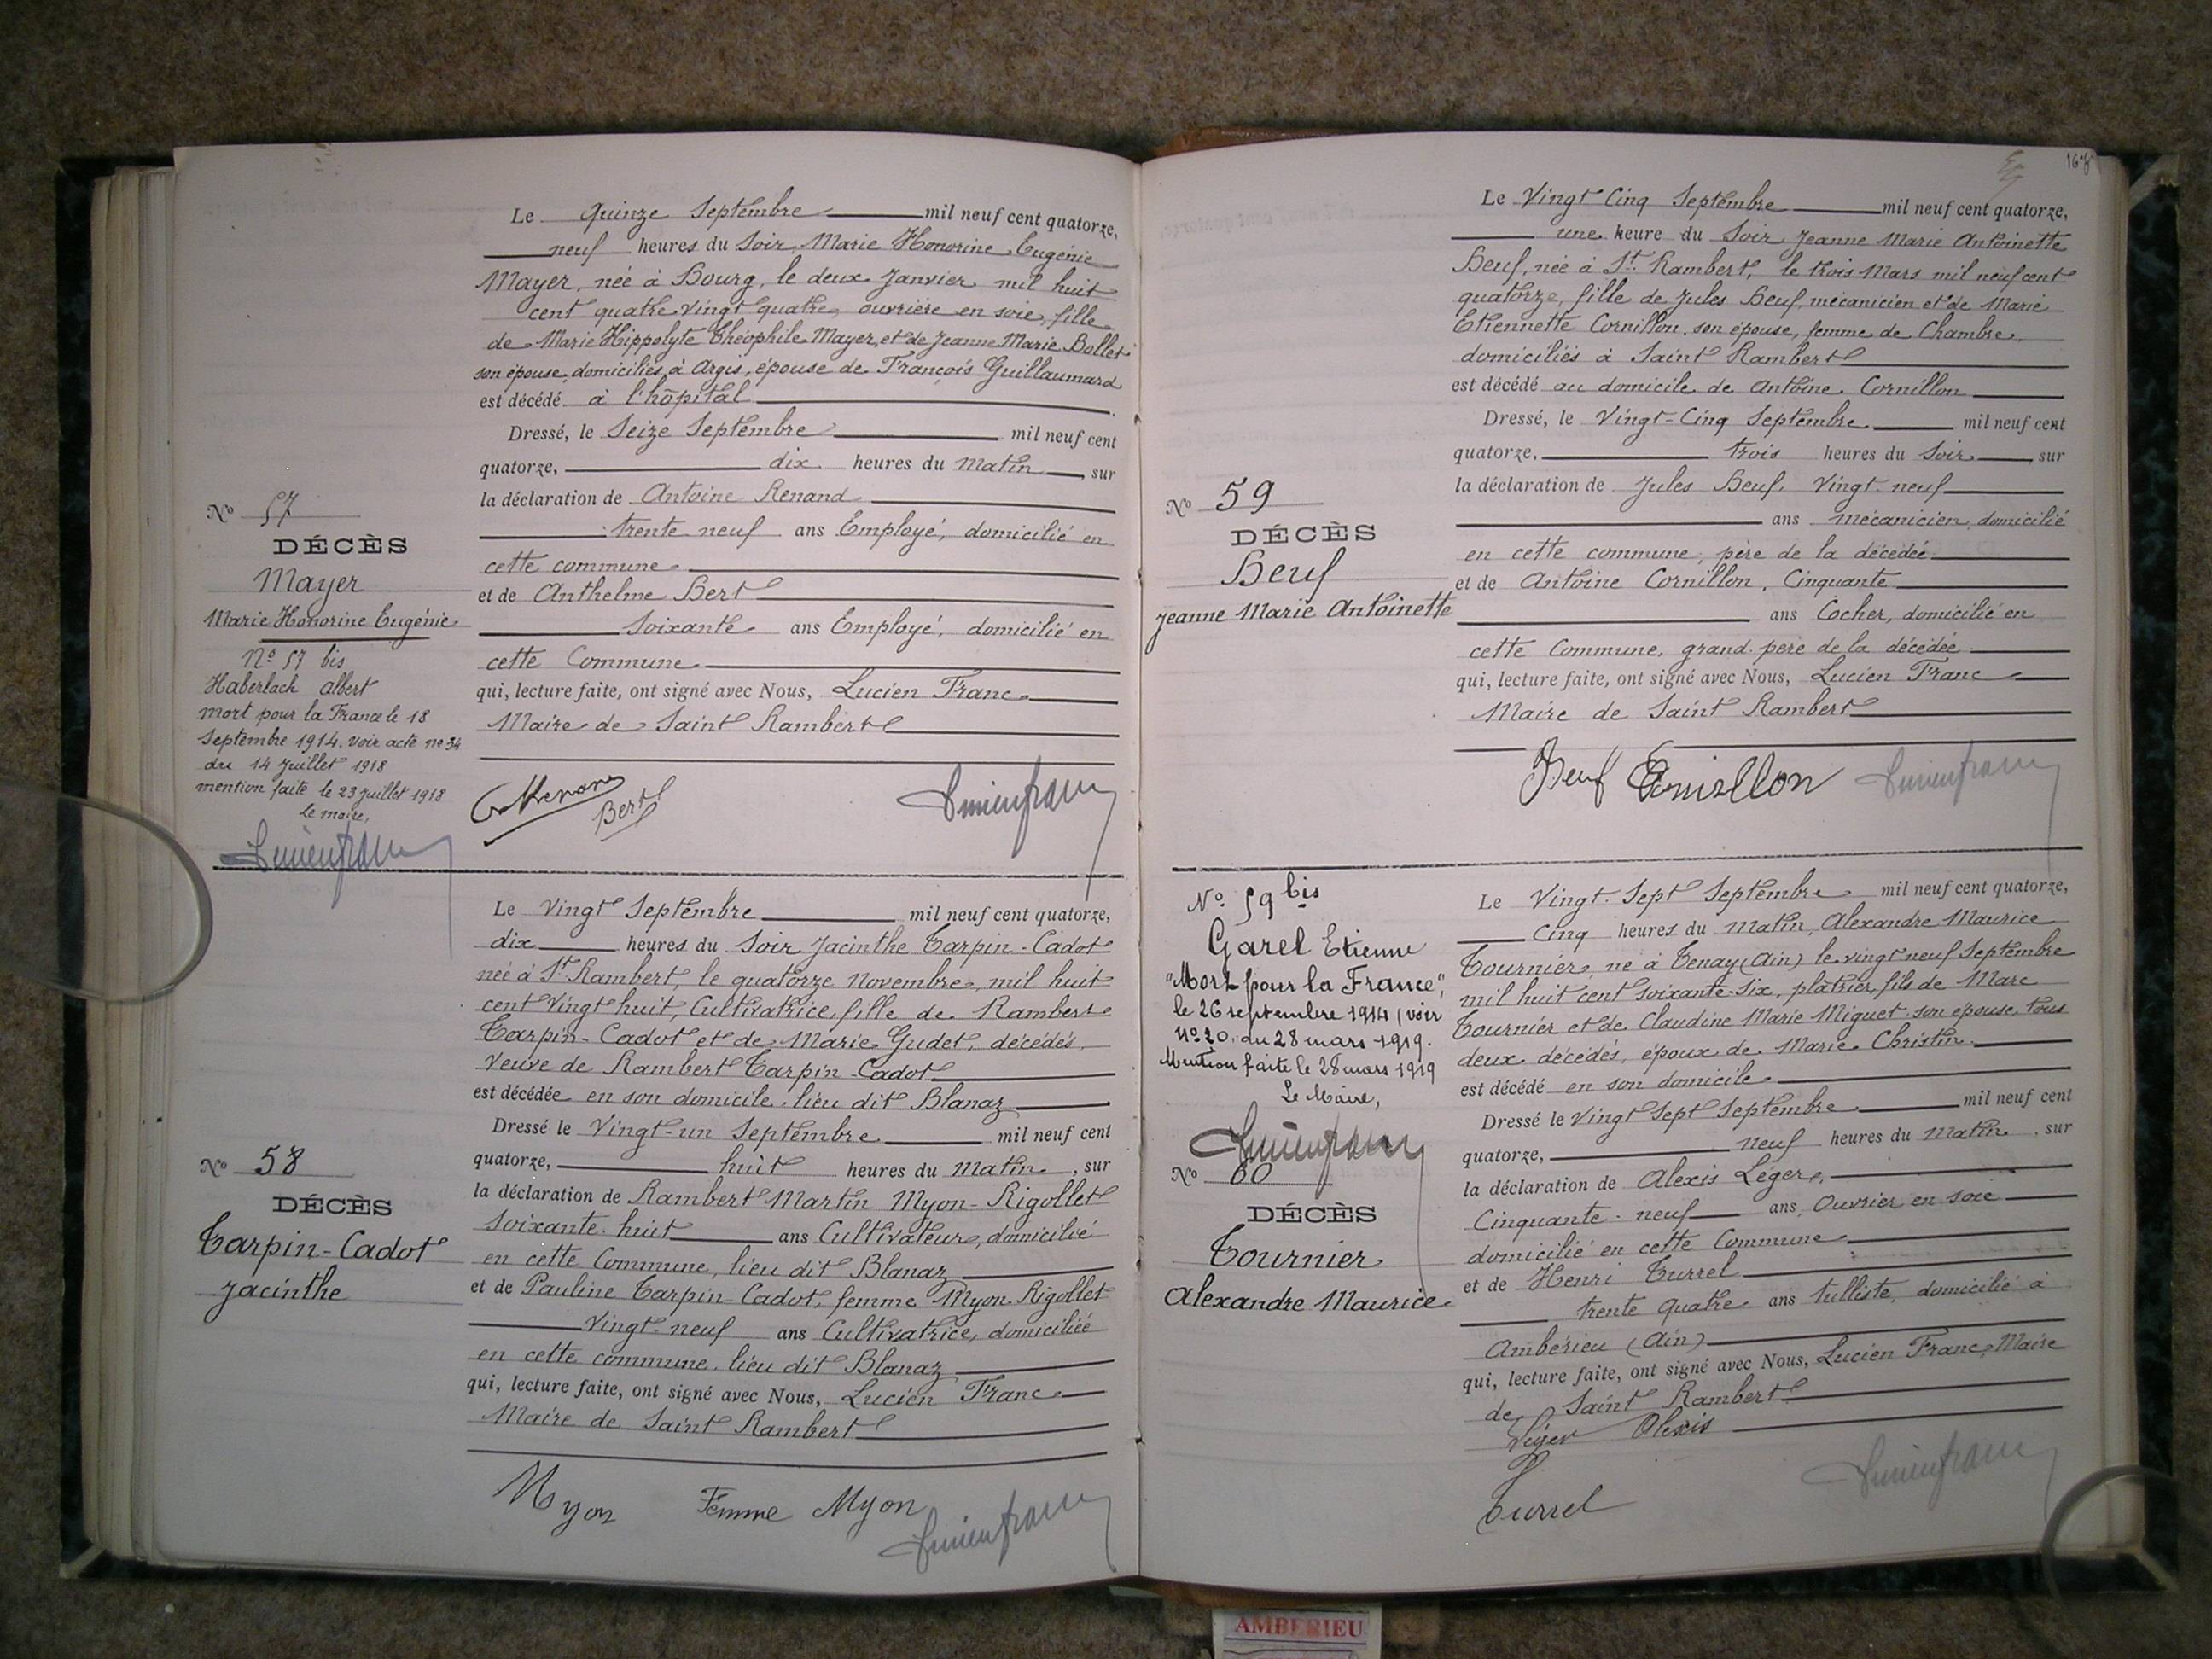 Le Quinze Septembre mil neuf cent quatorze,
neuf heures du Soir, Marie Honorine Eugénie
Mayer, née à Bourg, le deux Janvier mil huit
cent quatre vingt quatre, ouvrière en soie, fille
de Marie Hippolyte Théophile Mayer, et de Jeanne Marie Bollet
son épouse, domiciliés à Argis, épouse de François Guillaumard
est décédé à l'hôpital
Dressé, le Seize Septembre mil neuf cent
quatorze, dix heures du Matin, sur
la déclaration de Antoine Renand
trente neuf ans Employé, domicilié en
cette commune
et de Anthelme Bert
Soixante ans Employé, domicilié en
cette Commune
qui, lecture faite, ont signé avec Nous, Lucien Franc
Maire de Saint Rambert
Bert
No 57
DÉCÈS
Mayer
Marie Honorine Eugénie
No 57 bis
Haberlach Albert
mort pour la France le 18
Septembre 1914. voir acte no 34
du 14 Juillet 1918
mention faite le 23 juillet 1918
le maire,
Le Vingt Septembre mil neuf cent quatorze,
dix heures du Soir Jacinthe Tarpin-Cadot
née à St Rambert, le quatorze Novembre, mil huit
cent Vingt huit, Cultivatrice, fille de Rambert
Tarpin-Cadot et de Marie Gudet, décédés,
Veuve de Rambert Tarpin-Cadot
est décédée en son domicile, lieu dit Blanaz
Dressé le Vingt-un Septembre mil neuf cent
quatorze, huit heures du Matin, sur
la déclaration de Rambert Martin Myon-Rigollet
Soixante-huit ans Cultivateur, domicilié
en cette Commune, lieu dit Blanaz
et de Pauline Tarpin-Cadot, femme Myon-Rigollet
Vingt-neuf ans Cultivatrice, domiciliée
en cette commune, lieu dit Blanaz
qui, lecture faite, ont signé avec Nous, Lucien Franc
Maire de Saint Rambert
Myon Femme Myon
No 58
DÉCÈS
Tarpin-Cadot
Jacinthe
Le Vingt Cinq Septembre mil neuf cent quatorze,
une heure du Soir Jeanne Marie Antoinette
Beuf, née à St Rambert, le trois Mars mil neuf cent
quatorze, fille de Jules Beuf, mécanicien et de Marie
Etiennette Cornillon, son épouse, femme de Chambre,
domiciliés à Saint Rambert
est décédé au domicile de Antoine Cornillon
Dressé, le Vingt-Cinq Septembre mil neuf cent
quatorze, trois heures du Soir, sur
la déclaration de Jules Beuf, Vingt-neuf
ans mécanicien, domicilié
en cette commune, père de la décédée
et de Antoine Cornillon, Cinquante
ans Cocher, domicilié en
cette Commune, grand-père de la décédée
qui, lecture faite, ont signé avec Nous, Lucien Franc
Maire de Saint Rambert
Beuf Cornillon
No 59
DÉCÈS
Beuf
Jeanne Marie Antoinette
No 59 bis
Garel Etienne
"Mort pour la France",
le 26 septembre 1914 (voir
no 20. du 28 mars 1919.
Mention faite le 28 mars 1919
Le Maire,
Le Vingt-Sept Septembre mil neuf cent quatorze,
Cinq heures du Matin, Alexandre Maurice
Tournier, né à Tenay (Ain) le vingt neuf Septembre
mil huit cent soixante-six, plâtrier, fils de Marc
Tournier et de Claudine Marie Miguet son épouse, tous
deux décédés, époux de Marie Christin
est décédé en son domicile
Dressé le Vingt Sept Septembre mil neuf cent
quatorze, neuf heures du Matin, sur
la déclaration de Alexis Léger,
Cinquante-neuf ans, Ouvrier en soie
domicilié en cette Commune
et de Henri Turrel
trente quatre ans tulliste, domicilié à
Ambérieu (Ain)
qui, lecture faite, ont signé avec Nous, Lucien Franc, Maire
de Saint Rambert
Léger Alexis
Turrel
No 60
DÉCÈS
Tournier
Alexandre Maurice
AMBERIEU